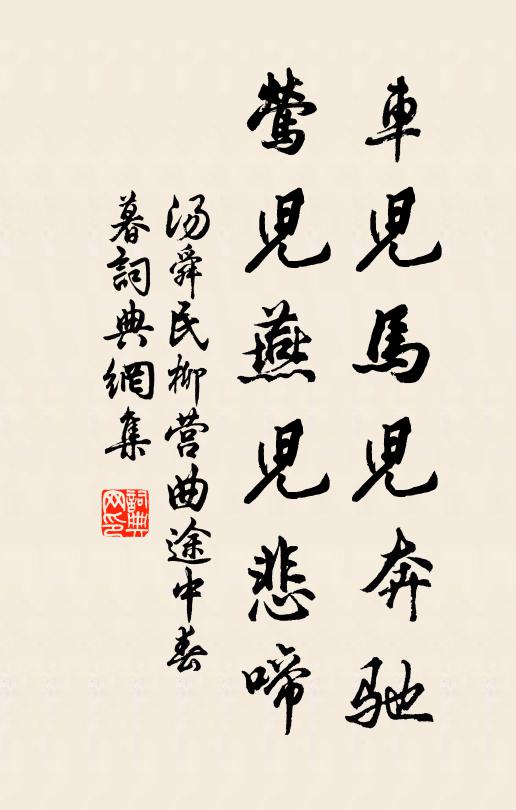 車兒馬兒奔馳
鶯兒燕兒悲啼
湯舜民柳营曲途中春
暮詞典網集
詞典
网印